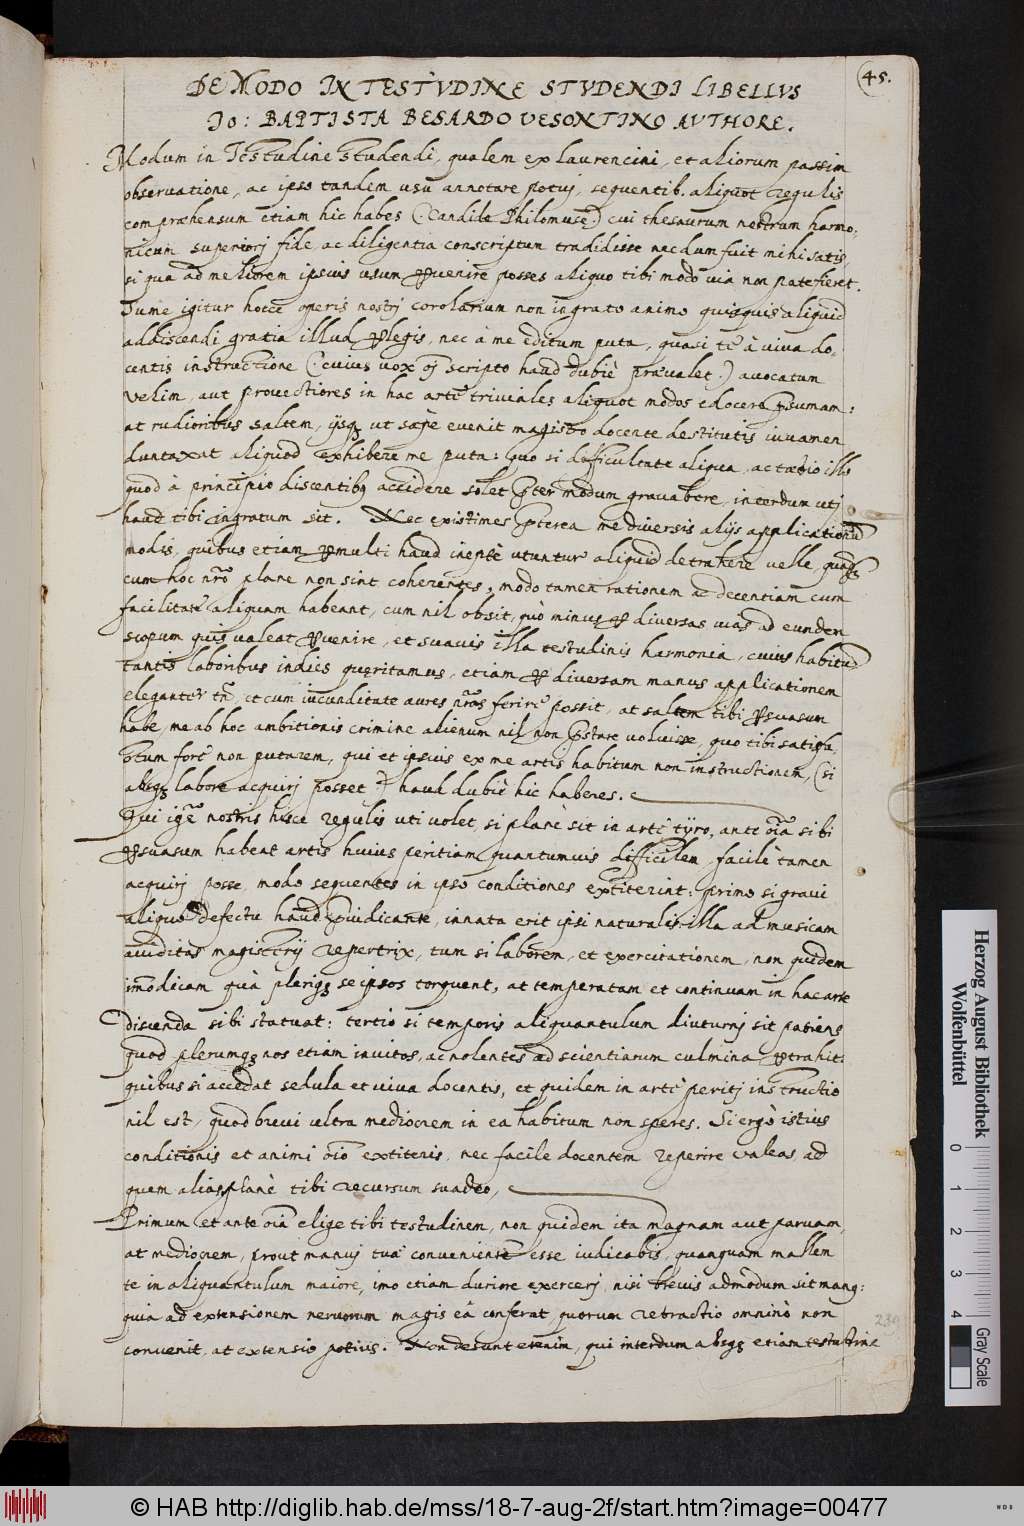 45.
DE MODO IN TESTVDINE STVDENDI LIBELLVS
IO: BAPTISTA BESARDO VESONTINO AVTHORE.
Modum in Testudine studendi, qualem ex Laurencini, et aliorum passim
observatione, ac ipso tandem usu annotare potuj, sequentib. aliquot regulis
compræhensum etiam hic habes (:Candide Philomuse:) cui thesaurum nostrum harmo:
nicum superiorj fide ac diligentia conscriptum tradidisse necdum fuit mihi satis,
si qua ad meliorem ipsius usum pervenire posses aliquo tibi modo via non patefieret.
Sume igitur hocce operis nostrj corolarium non ingrato animo quisquis aliquid
addiscendi gratia illud perlegis, nec à me editum puta, quasi te à viva do:
centis instructione (:cuius vox scripto haud dubiè prævalet:) avocatum
velim, aut provectiores in hac arte triviales aliquot modos edocere præsumam:
at rudioribus saltem, ijsq ut sæpe evenit magistro docente destitutis iuvamen
duntaxat aliquod exhibere me puta: quo si difficultate aliqua, ac tædio illo
quod à principio discentibq accidere solet præter modum gravabere, interdum utj
haud tibi ingratum sit. Nec existimes præterea me diversis alijs applicationū
modis, quibus etiam permulti haud ineptè utuntur aliquid detrahere velle, quāq
cum hoc nrō plane non sint coherentes, modo tamen rationem ac decentiam cum
facilitate aliquam habeant, cum nil obsit, quò minus per diversas vias ad eundem
scopum quis valeat pervenire, et suavis illa testudinis harmonia, cuius habitū
tantis laboribus indies queritamus, etiam per diversam manus applicationem
eleganter tn, et cum iucunditate aures nrās ferire possit, at saltem tibi persuasum
habe, me ab hoc ambitionis crimine alienum nil non præstare voluisse, quo tibi satisfa,
ctum fore non putarem, qui et ipsius ex me artis habitum non instructionem, (si
absq labore acquirj posset) haud dubiè hic haberes.
Qui igr nostris hisce regulis uti volet, si planè sit in arte tyro, ante oīa sibi
persuasum habeat artis huius peritiam quantumvis difficilem facilè tamen
acquirj posse, modo sequentes in ipso conditiones extiterint: primo si gravi
aliquo defectu haud præiudicante, innata erit ipsi naturalis illa ad musicam
aviditas magisterij repertrix, tum si laborem, et exercitationem, non quidem
imodicam quà plerigq seipsos torquent, at temperatam et continuam in hac arte
discenda sibi statuat: tertio si temporis aliquantulum diuturnj sit patiens
quod plerumq nos etiam invitos, ac nolentes ad scientiarum culmina pertrahit:
quibus si accedat sedula et viva docentis, et quidem in arte peritj instructio
nil est, quod brevi ultra mediocrem in ea habitum non speres. Si ergò istius
conditionis et animi oīo extiteris, nec facile docentem reperire valeas, ad
quem alias planè tibi recursum suadeo,
Primum et ante oīa elige tibi testudinem, non quidem ita magnam aut parvam,
at mediocrem, prout manuj tuæ convenientē esse iudicabis, quanquam mallem
te in aliquantulum maiore, imo etiam duriore exercerj, nisi brevis admodum sit manq:
quia ad extensionem nervorum magis ea conferat quorum retractio omninò non
convenit, at extensio potius. Non desunt etenim, qui interdum absq etiam testudine
239
Herzog August Bibliothek
Wolfenbüttel
0 1 2 3 4
Gray Scale
© HAB http://diglib.hab.de/mss/18-7-aug-2f/start.htm?image=00477